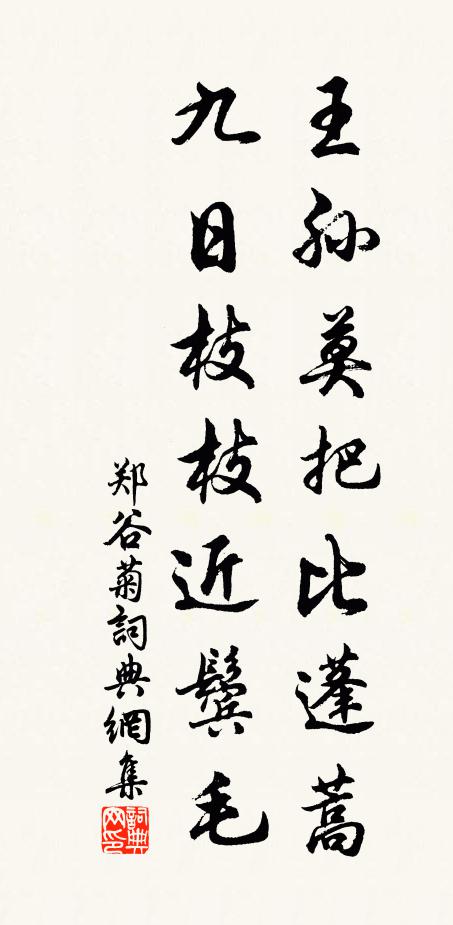 王孙莫把比蓬蒿
九日枝枝近鬓毛
郑谷菊詞典網集
詞典网印